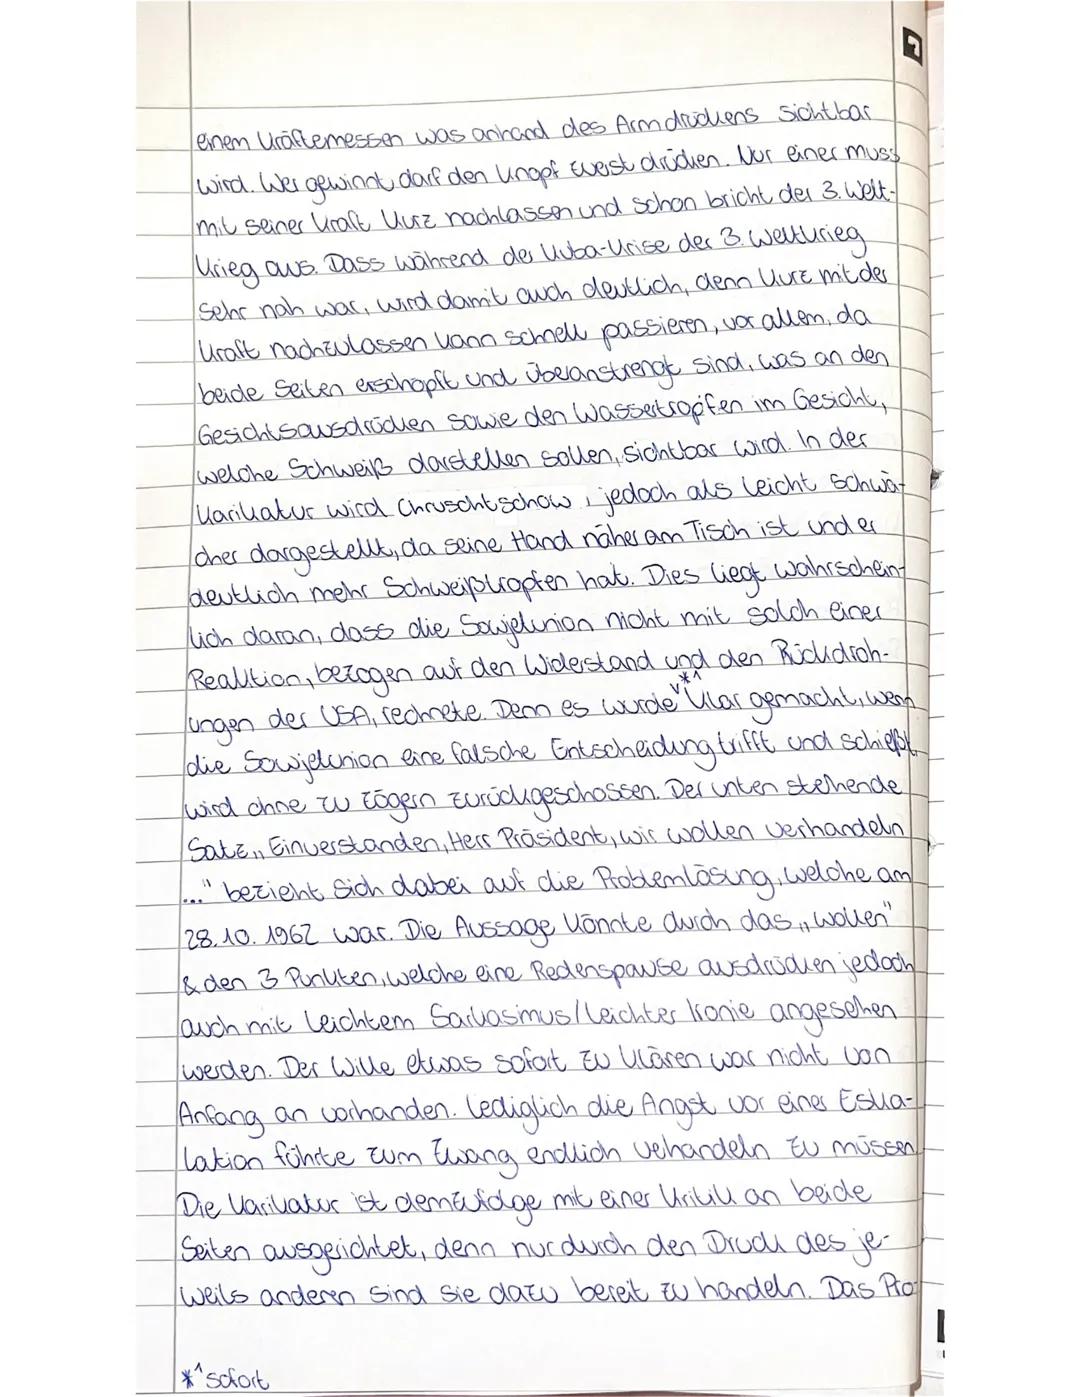 einem Kräftemessen was anhand des Armdrückens sichtbar
wird. Wer gewinnt, darf den Knopf zuerst drücken. Nur einer muss
mit seiner Kraft kurz nachlassen und schon bricht der 3. Welt-
krieg aus. Dass während der Kuba-Krise der 3. Weltkrieg
sehr nah war, wird damit auch deutlich, denn kurz mit der
Kraft nachzulassen kann schnell passieren, vor allem, da
beide Seiten erschöpft und überanstrengt sind, was an den
Gesichtsausdrücken sowie den Wassertropfen im Gesicht,
welche Schweiß darstellen sollen, sichtbar wird. In der
Karikatur wird Chruschtschow, jedoch als leicht schwä-
cher dargestellt, da seine Hand näher am Tisch ist und er
deutlich mehr Schweißtropfen hat. Dies liegt wahrschein-
lich daran, dass die Sowjetunion nicht mit solch einer
Reaktion, bezogen auf den Widerstand und den Rückdroh-
ungen der USA, rechnete. Denn es wurde *¹ klar gemacht, wenn
die Sowjetunion eine falsche Entscheidung trifft und schießt,
wird ohne zu zögern zurückgeschossen. Der unten stehende
Satz „Einverstanden, Herr Präsident, wir wollen verhandeln
..." bezieht sich dabei auf die Problemlösung, welche am
28.10.1962 war. Die Aussage könnte durch das „wollen"
& den 3 Punkten, welche eine Redenspause ausdrücken jedoch
auch mit leichtem Sarkasmus/leichter Ironie angesehen
werden. Der Wille etwas sofort zu klären war nicht von
Anfang an vorhanden. Lediglich die Angst vor einer Eska-
lation führte zum Zwang endlich vehandeln zu müssen.
Die Karikatur ist demzufolge mit einer Kritik an beide
Seiten ausgerichtet, denn nur durch den Druck des je-
weils anderen sind sie dazu bereit zu handeln. Das Pro-
*¹ sofort